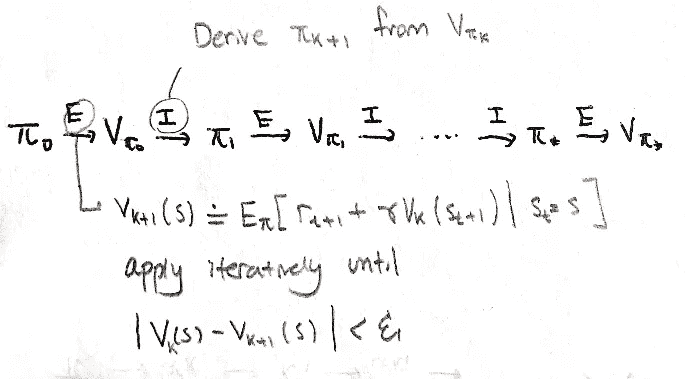 Derive π_{k+1} from V_{π_k}
π_0 →^E V_{π_0} →^I π_1 →^E V_{π_1} →^I .... →^I π_* →^E V_{π_*}
V_{k+1}(s) ≐ E_π[ r_{t+1} + γV_k(s_{t+1}) | s_t = s ]
apply iteratively until
| V_k(s) - V_{k+1}(s) | < ε